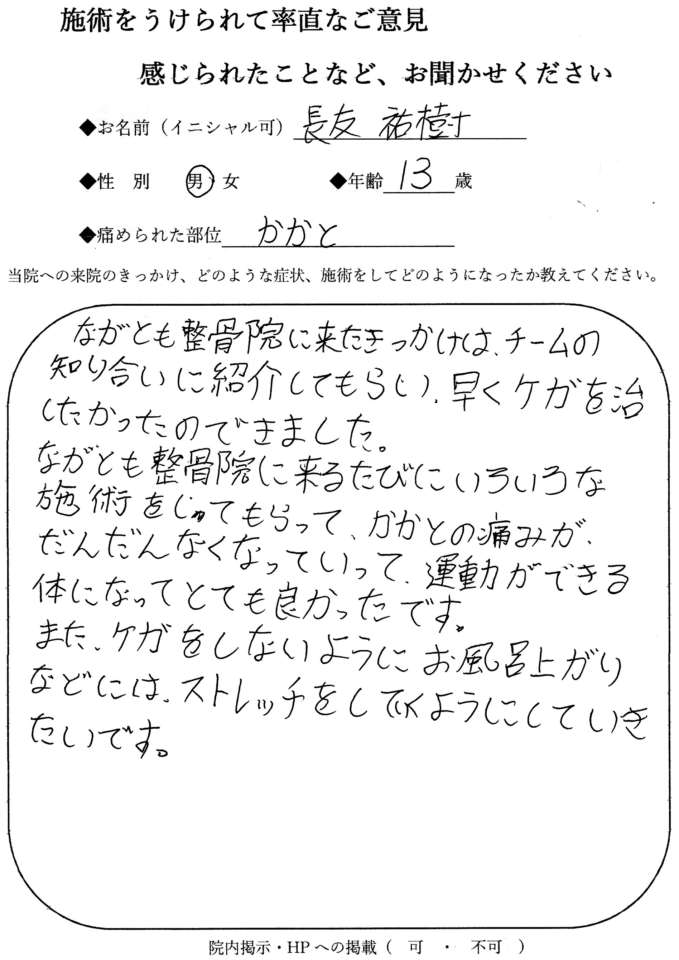 施術をうけられて率直なご意見
感じられたことなど、お聞かせください
◆お名前（イニシャル可） 長友 祐樹
◆性 別 男・女 ◆年齢 13 歳
◆痛められた部位 かかと
当院への来院のきっかけ、どのような症状、施術をしてどのようになったか教えてください。
ながとも整骨院に来たきっかけは、チームの
知り合いに紹介してもらい、早くケガを治
したかったのできました。
ながとも整骨院に来るたびにいろいろな
施術をしてもらって、かかとの痛みが、
だんだんなくなっていって、運動ができる
体になってとても良かったです。
また、ケガをしないようにお風呂上がり
などには、ストレッチをしてくようにしていき
たいです。
院内掲示・HPへの掲載（ 可 ・ 不可 ）